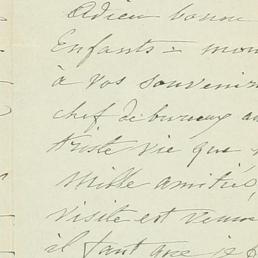 Adieu bonne
Enfants = mon
à vos souvenirs
chef de bureau au
triste vie que
mille amitiés
visite est venue
il faut que je